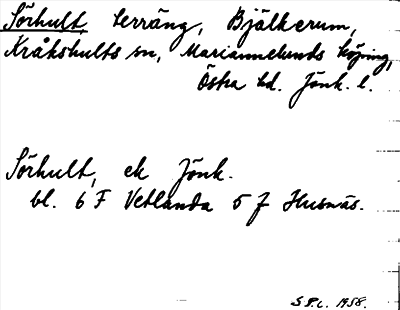 Sörhult, terräng, Bjälkerum,
Kråkshults sn, Mariannelunds köping,
Östra hd. Jönk. l.
Sörhult, ek Jönk.
bl. 6 F Vetlanda 5 f Husnäs.
S P.L. 1958.